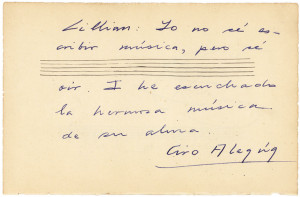 Lillian: Yo no sé es-
cribir música, pero sé
oir. I he escuchado
la hermosa música
de su alma.
Ciro Alegría